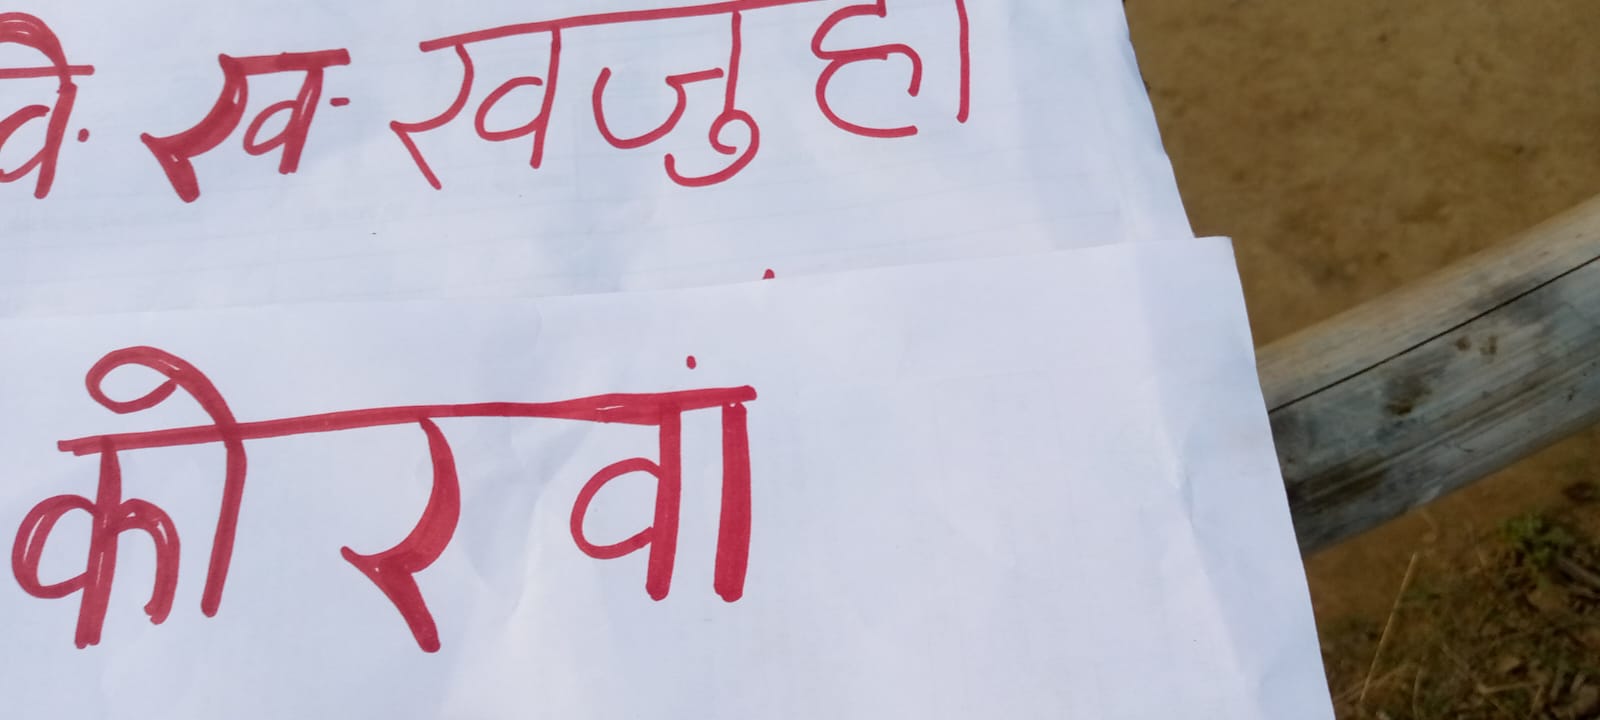 वि. ख- खजुहा
कीरवां